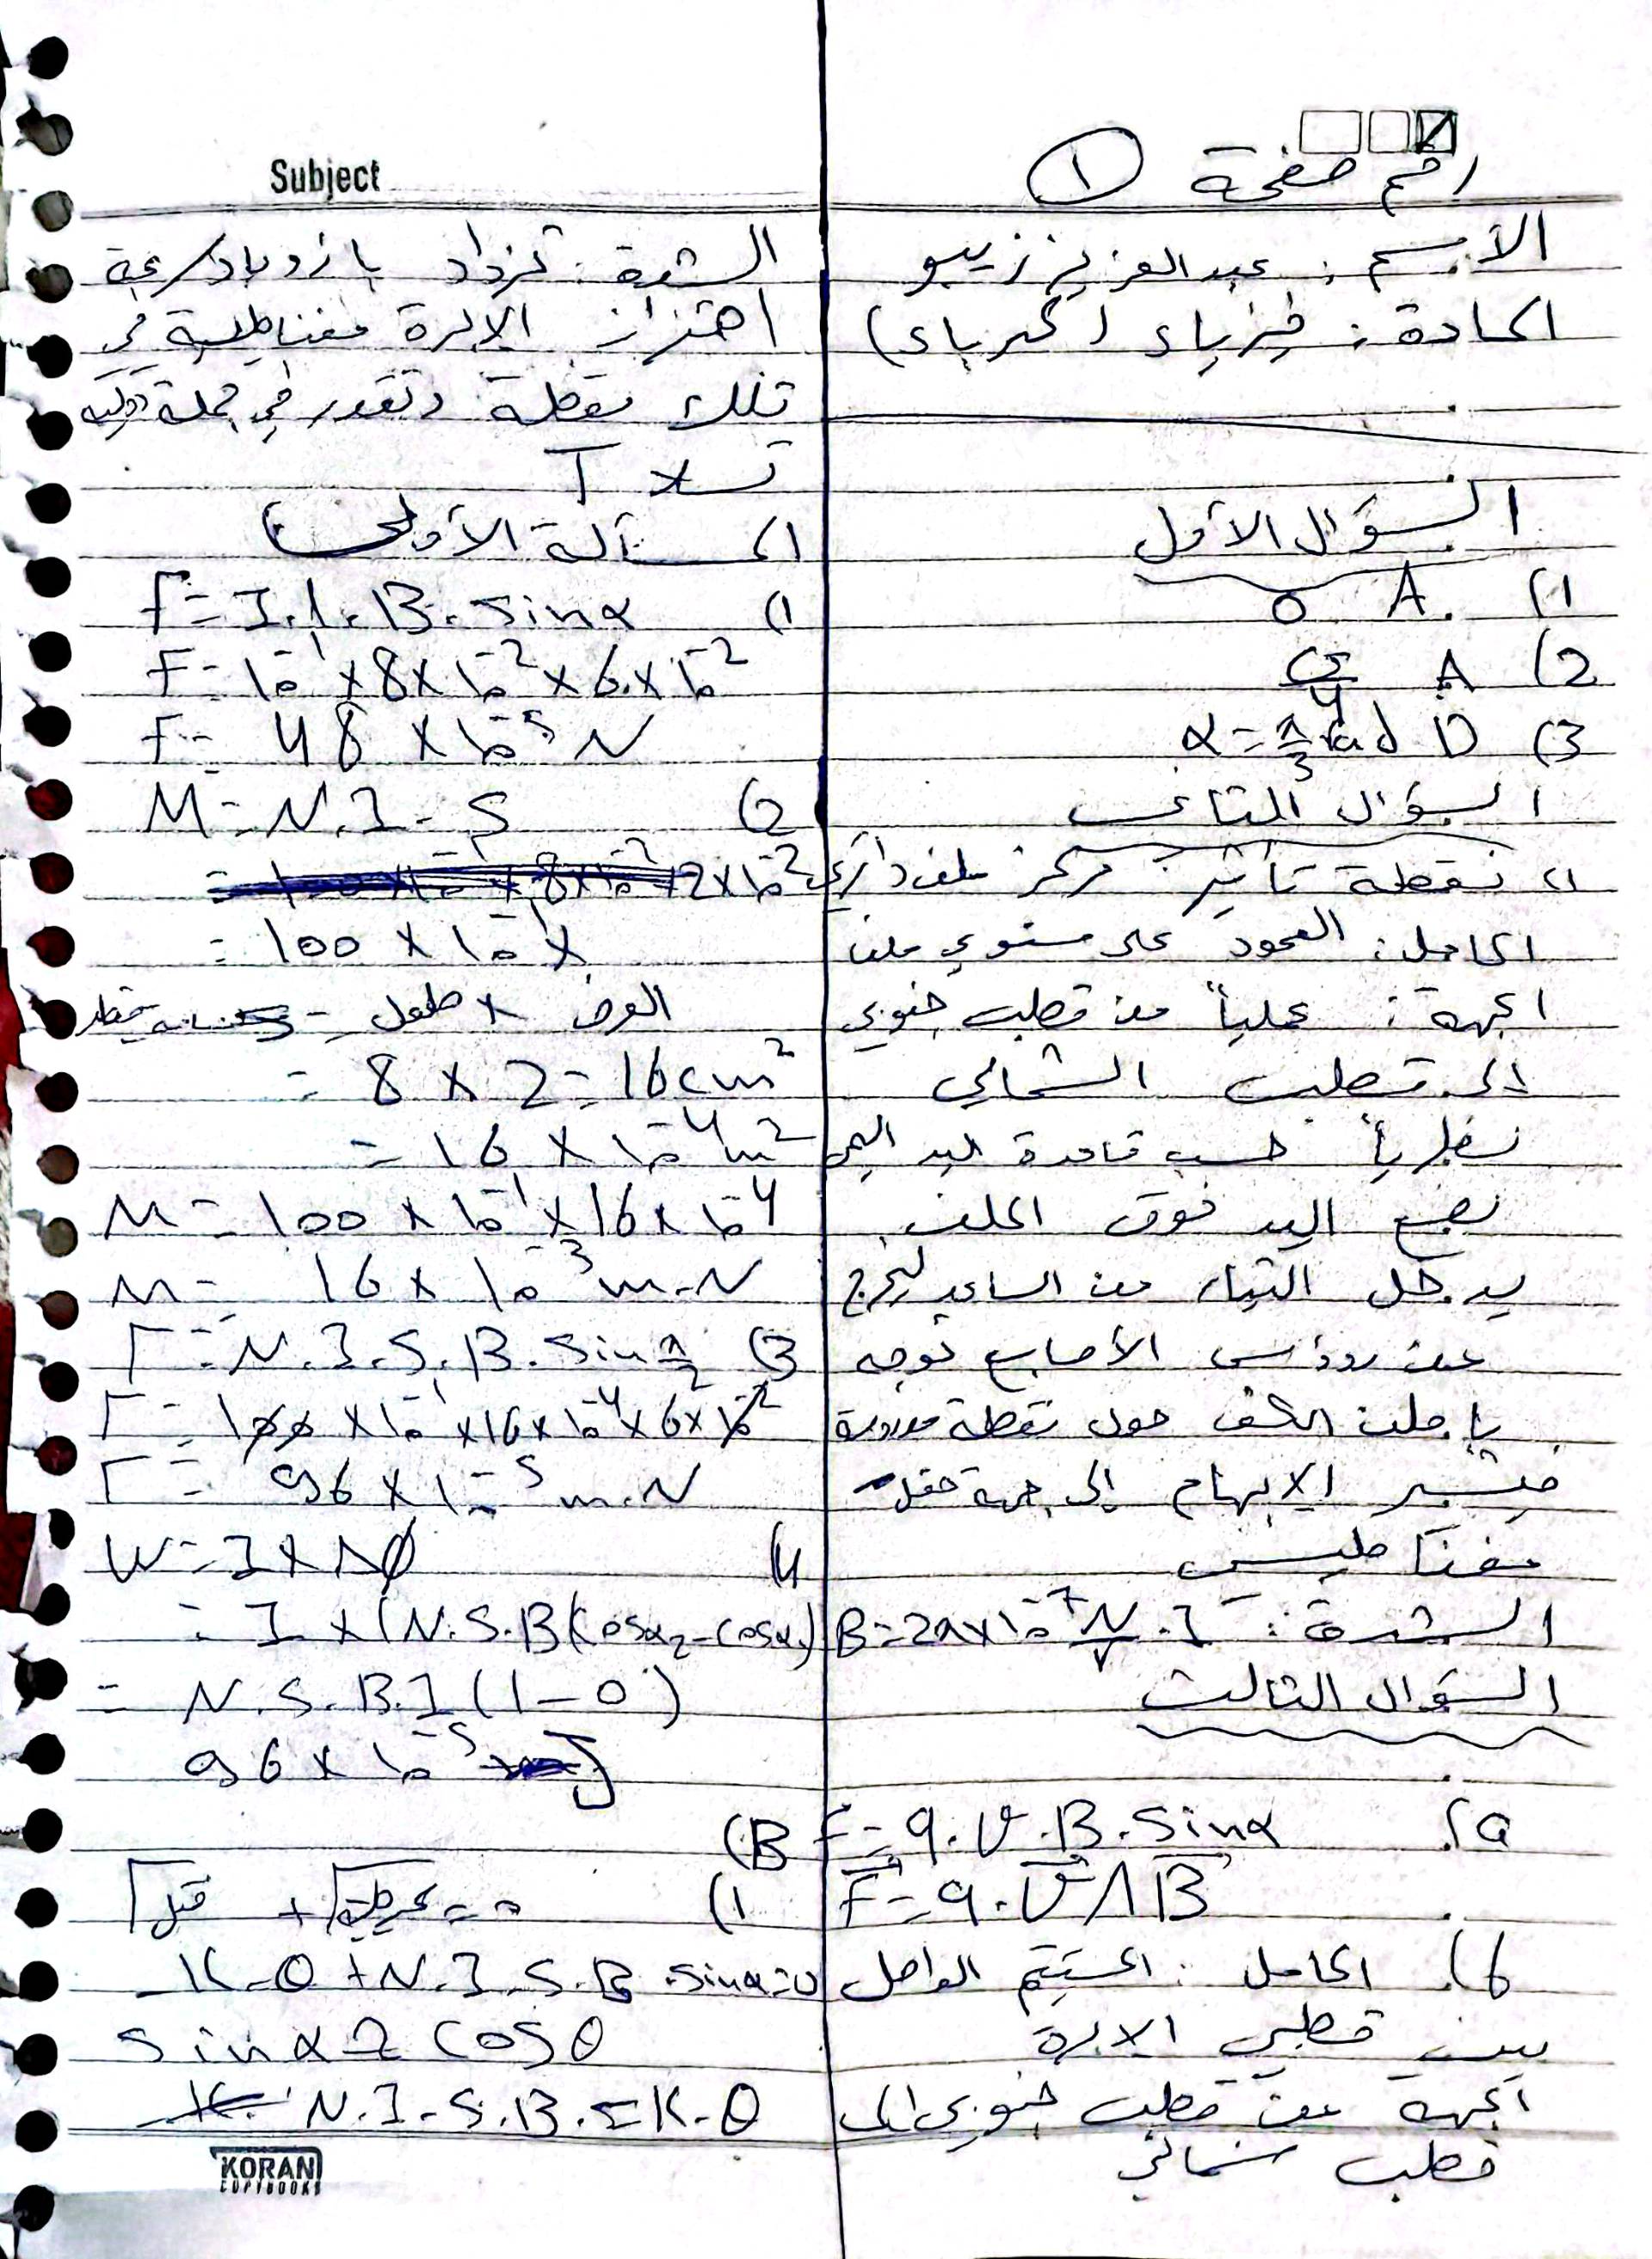 Subject
رقم صفحة ١
الأسم : عبد العزيز زيبو
المادة : فيزياء (كهرباء)
السؤال الأول
1) A. 0
2) A
3) D α = π/3 rad
السؤال الثاني
1) نقطة تأثير : مركز ملف دائري
الحامل : العمود على مستوي ملف
الجهة : عملياً من قطب جنوبي
إلى قطب الشمالي
نظرياً حسب قاعدة اليد اليمى
نضع اليد فوق الملف
يدخل التيار من الساعد ليخرج
من رؤوس الأصابع نوجه
باطن الكف حول نقطة مدروسة
فيشير الابهام إلى جهة حقل
مغناطيسي
الشدة : B = 2π × 10⁻⁷ N/r . I
السؤال الثالث
a) F = q . v . B . sinα
F = q . v Λ B
b) الحامل : المستقيم الواصل
بين قطبي الابرة
الجهة من قطب جنوبي الى
قطب شمالي
الشدة : تزداد بازدياد سرعة
اهتزاز الإبرة مغناطيسية في
تلك نقطة وتقدر في جملة دولية
تسلا T
المسألة الأولى
1) F = I . L . B . sinα
F = 10⁻¹ × 8 × 10⁻² × 6 × 10⁻²
F = 48 × 10⁻⁵ N
2) M = N . I . S
= 100 × 10⁻¹ ×
العرض × طول =
= 8 × 2 = 16 cm²
= 16 × 10⁻⁴ m²
M = 100 × 10⁻¹ × 16 × 10⁻⁴
M = 16 × 10⁻³ m.N
3) Γ = N . I . S . B . sin π/2
Γ = 100 × 10⁻¹ × 16 × 10⁻⁴ × 6 × 10⁻²
Γ = 96 × 10⁻⁵ m.N
4) W = I × Δφ
= I × (N.S.B(cosα₂ - cosα₁)
= N . S . B . I (1 - 0)
96 × 10⁻⁵ J
B)
1) Γ + Γ = 0
-K.θ + N.I.S.B .sinα = 0
sinα = cosθ
N . I . S . B . = K . θ
KORAN
COPYBOOKS